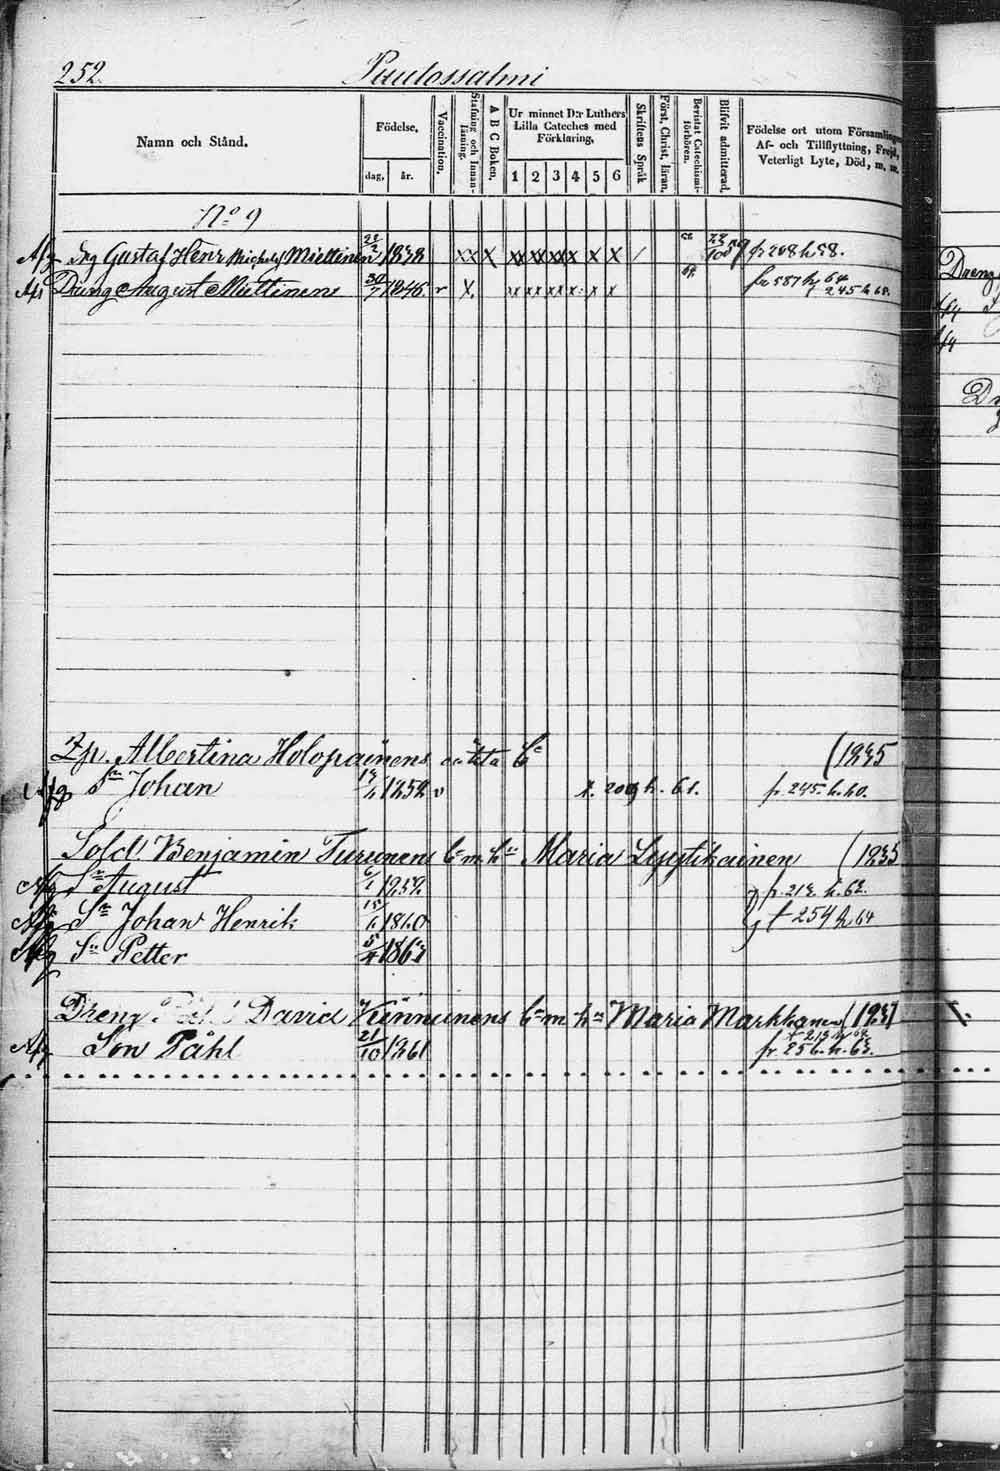 252.
Puutossalmi
Namn och Stånd.
Födelse,
dag, år.
Vaccination,
Stafning och Innanläsning.
A B C Boken,
Ur minnet D:r Luthers
Lilla Cateches med
Förklaring,
1 2 3 4 5 6
Skriftens Språk
Först, Christ, läran,
Bevistat Catechismiförhören.
Blifvit admitterad,
Födelse ort utom Församlingen
Af- och Tillflyttning, Frejd,
Veterligt Lyte, Död, m. m.
No 9
Afg Dng Gustaf Henr Michelss Miettinen 1838 XX X XX XX XX X X X / fr 208 h 58.
Afg Dräng August Miettinen 30/7 1846. v X. x x x x x x x fr 587 h 64
245 h 68.
Zp. Albertina Holopainens oäkta (1835
Afg Sn Johan 1858 v fr 245. h. 60.
Sold. Benjamin Turunens m h Maria Lyytikainen (1835
Afg Sn August 6/1 1859 fr 213 h. 63.
Afg Sn Johan Henrik 1860 t 254 h 64
Afg Sn Petter 5/4 1863
Dreng David Kinnunens m h Maria Markkanen (1837
t 213 h 62
Afg Son Påhl 21/10 1861 fr. 256. h. 63.
Dreng